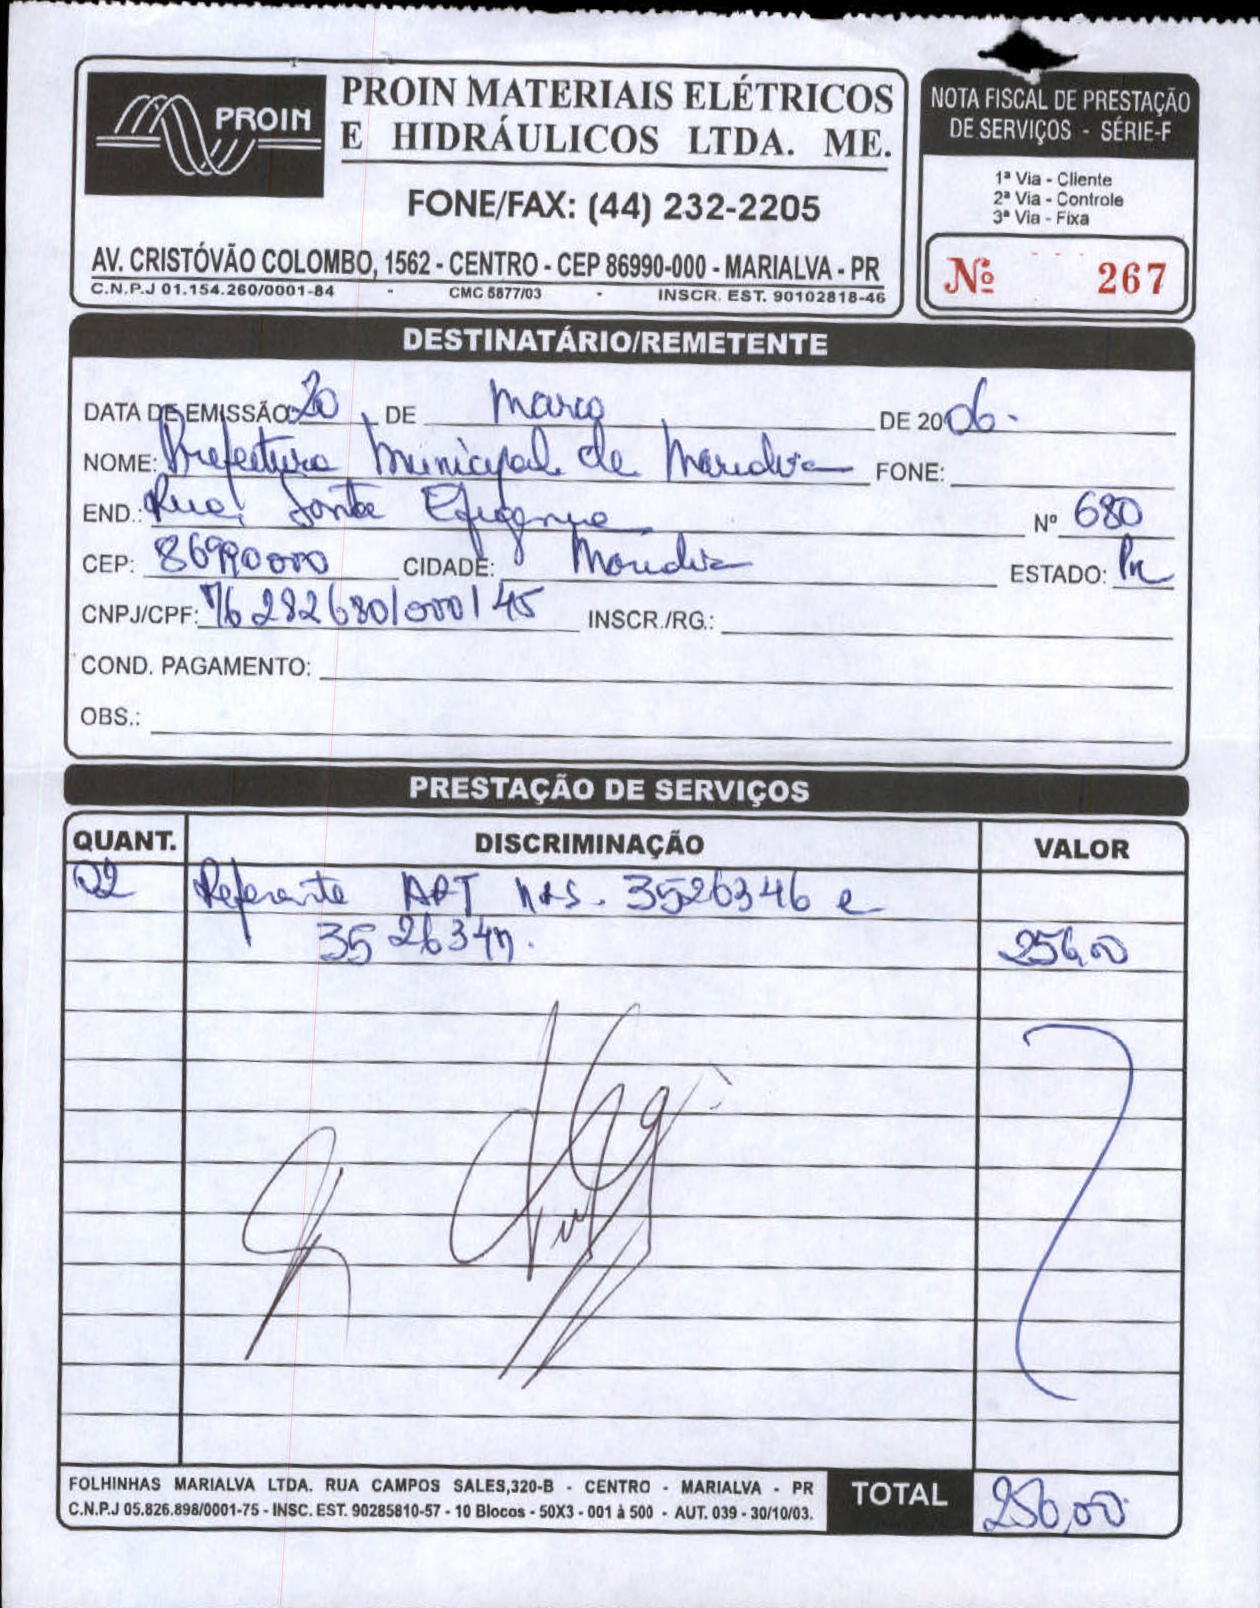 PROIN
PROIN MATERIAIS ELÉTRICOS
E HIDRÁULICOS LTDA. ME.
FONE/FAX: (44) 232-2205
AV. CRISTÓVÃO COLOMBO, 1562 - CENTRO - CEP 86990-000 - MARIALVA - PR
C.N.P.J 01.154.260/0001-84 - CMC 5877/03 - INSCR. EST. 90102818-46
NOTA FISCAL DE PRESTAÇÃO
DE SERVIÇOS - SÉRIE-F
1ª Via - Cliente
2ª Via - Controle
3ª Via - Fixa
Nº 267
DESTINATÁRIO/REMETENTE
DATA DE EMISSÃO: 20 DE Março DE 2006.
NOME: Prefeitura Municipal de Marialva FONE:
END.: Rua: Santa Efigenia Nº 680
CEP: 86990000 CIDADE: Marialva ESTADO: Pr
CNPJ/CPF: 76282680/0001/45 INSCR./RG.:
COND. PAGAMENTO:
OBS.:
PRESTAÇÃO DE SERVIÇOS
QUANT. DISCRIMINAÇÃO VALOR
02 Referente ART 3526346 e
3526347. 256,00
FOLHINHAS MARIALVA LTDA. RUA CAMPOS SALES,320-B - CENTRO - MARIALVA - PR
C.N.P.J 05.826.898/0001-75 - INSC. EST. 90285810-57 - 10 Blocos - 50X3 - 001 à 500 - AUT. 039 - 30/10/03.
TOTAL 256,00